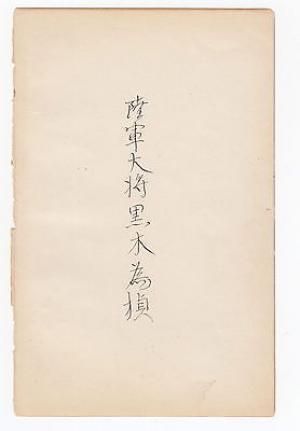 陸軍大将黒木為楨